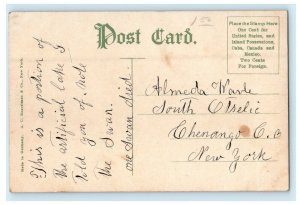 150
Post Card.
Place the Stamp Here
One Cent for
United States, and
Island Possessions,
Cuba, Canada and
Mexico.
Two Cents
For Foreign.
Made in Germany. A. C. Bosselman & Co., New York.
This is a portion of
the artificial lake I
told you of. Note
the Swan.
one swan died.
Almeda Warte
South Otselic
Chenango C.o
New York